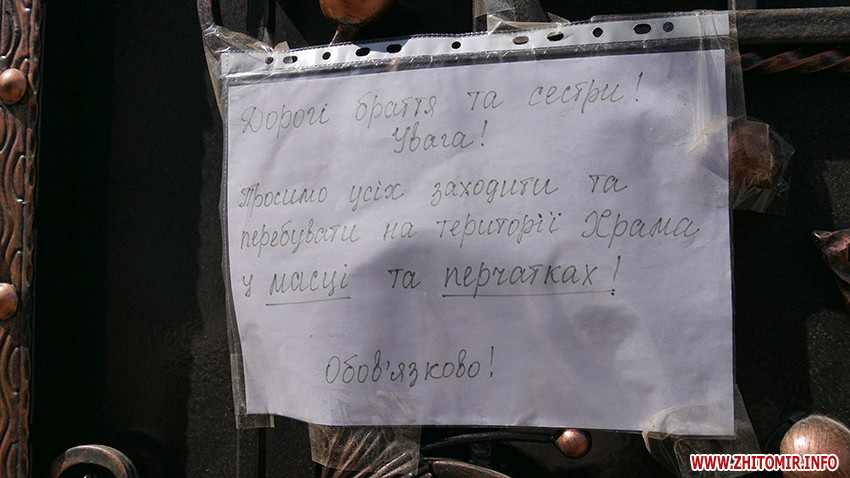 Дорогі браття та сестри!
Увага!
Просимо усіх заходити та
перебувати на території Храма
у масці та перчатках!
Обов'язково!
WWW.ZHITOMIR.INFO